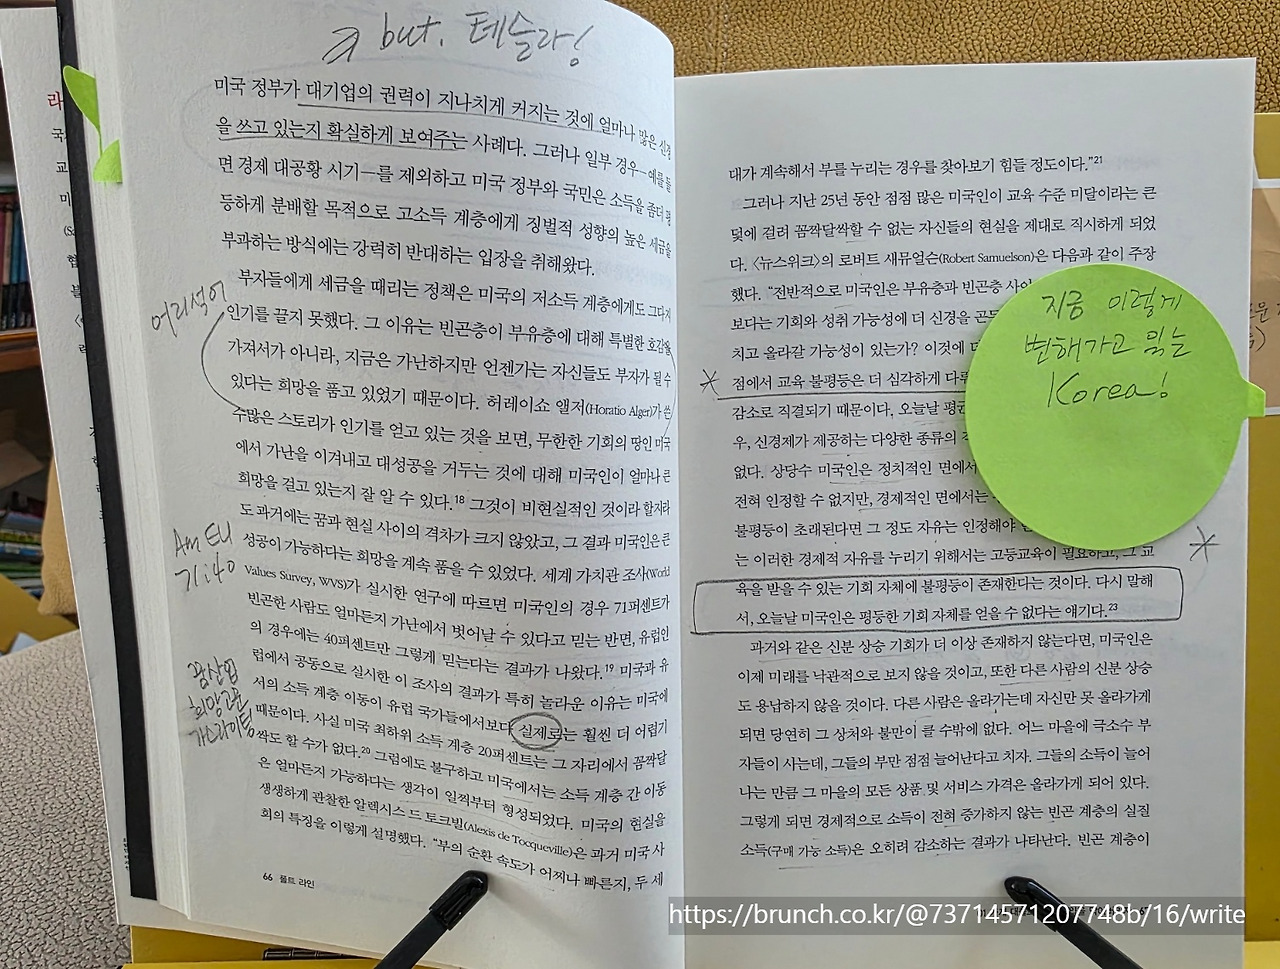 but. 테슬라!
미국 정부가 대기업의 권력이 지나치게 커지는 것에 얼마나 많은 신경
을 쓰고 있는지 확실하게 보여주는 사례다. 그러나 일부 경우—예를 들
면 경제 대공황 시기—를 제외하고 미국 정부와 국민은 소득을 좀더 평
등하게 분배할 목적으로 고소득 계층에게 징벌적 성향의 높은 세금을
부과하는 방식에는 강력히 반대하는 입장을 취해왔다.
부자들에게 세금을 때리는 정책은 미국의 저소득 계층에게도 그다지
어리석어
인기를 끌지 못했다. 그 이유는 빈곤층이 부유층에 대해 특별한 호감을
가져서가 아니라, 지금은 가난하지만 언젠가는 자신들도 부자가 될 수
있다는 희망을 품고 있었기 때문이다. 허레이쇼 앨저(Horatio Alger)가 쓴
수많은 스토리가 인기를 얻고 있는 것을 보면, 무한한 기회의 땅인 미국
에서 가난을 이겨내고 대성공을 거두는 것에 대해 미국인이 얼마나 큰
희망을 걸고 있는지 잘 알 수 있다.18 그것이 비현실적인 것이라 할지라
도 과거에는 꿈과 현실 사이의 격차가 크지 않았고, 그 결과 미국인은 큰
성공이 가능하다는 희망을 계속 품을 수 있었다. 세계 가치관 조사(World
71:40
Values Survey, WVS)가 실시한 연구에 따르면 미국인의 경우 71퍼센트가
빈곤한 사람도 얼마든지 가난에서 벗어날 수 있다고 믿는 반면, 유럽인
의 경우에는 40퍼센트만 그렇게 믿는다는 결과가 나왔다.19 미국과 유
럽에서 공동으로 실시한 이 조사의 결과가 특히 놀라운 이유는 미국에
꿈산업
희망고문
가스라이팅
서의 소득 계층 이동이 유럽 국가들에서보다 실제로는 훨씬 더 어렵기
때문이다. 사실 미국 최하위 소득 계층 20퍼센트는 그 자리에서 꼼짝달
싹도 할 수가 없다.20 그럼에도 불구하고 미국에서는 소득 계층 간 이동
은 얼마든지 가능하다는 생각이 일찍부터 형성되었다. 미국의 현실을
생생하게 관찰한 알렉시스 드 토크빌(Alexis de Tocqueville)은 과거 미국 사
회의 특징을 이렇게 설명했다. “부의 순환 속도가 어찌나 빠른지, 두 세
66 폴트 라인
대가 계속해서 부를 누리는 경우를 찾아보기 힘들 정도이다.”21
그러나 지난 25년 동안 점점 많은 미국인이 교육 수준 미달이라는 큰
덫에 걸려 꼼짝달싹할 수 없는 자신들의 현실을 제대로 직시하게 되었
다. 〈뉴스위크〉의 로버트 새뮤얼슨(Robert Samuelson)은 다음과 같이 주장
했다. “전반적으로 미국인은 부유층과 빈곤층 사이
보다는 기회와 성취 가능성에 더 신경을
치고 올라갈 가능성이 있는가? 이것에
점에서 교육 불평등은 더 심각하게
감소로 직결되기 때문이다, 오늘날
우, 신경제가 제공하는 다양한 종류의
없다. 상당수 미국인은 정치적인 면에서
전혀 인정할 수 없지만, 경제적인 면에서는
불평등이 초래된다면 그 정도 자유는 인정해야
는 이러한 경제적 자유를 누리기 위해서는 고등교육이 필요하고, 그 교
육을 받을 수 있는 기회 자체에 불평등이 존재한다는 것이다. 다시 말해
서, 오늘날 미국인은 평등한 기회 자체를 얻을 수 없다는 얘기다.23
과거와 같은 신분 상승 기회가 더 이상 존재하지 않는다면, 미국인은
이제 미래를 낙관적으로 보지 않을 것이고, 또한 다른 사람의 신분 상승
도 용납하지 않을 것이다. 다른 사람은 올라가는데 자신만 못 올라가게
되면 당연히 그 상처와 불만이 클 수밖에 없다. 어느 마을에 극소수 부
자들이 사는데, 그들의 부만 점점 늘어난다고 치자. 그들의 소득이 늘어
나는 만큼 그 마을의 모든 상품 및 서비스 가격은 올라가게 되어 있다.
그렇게 되면 경제적으로 소득이 전혀 증가하지 않는 빈곤 계층의 실질
소득(구매 가능 소득)은 오히려 감소하는 결과가 나타난다. 빈곤 계층이
지금 이렇게
변해가고 있는
Korea!
https://brunch.co.kr/@73714571207748b/16/write